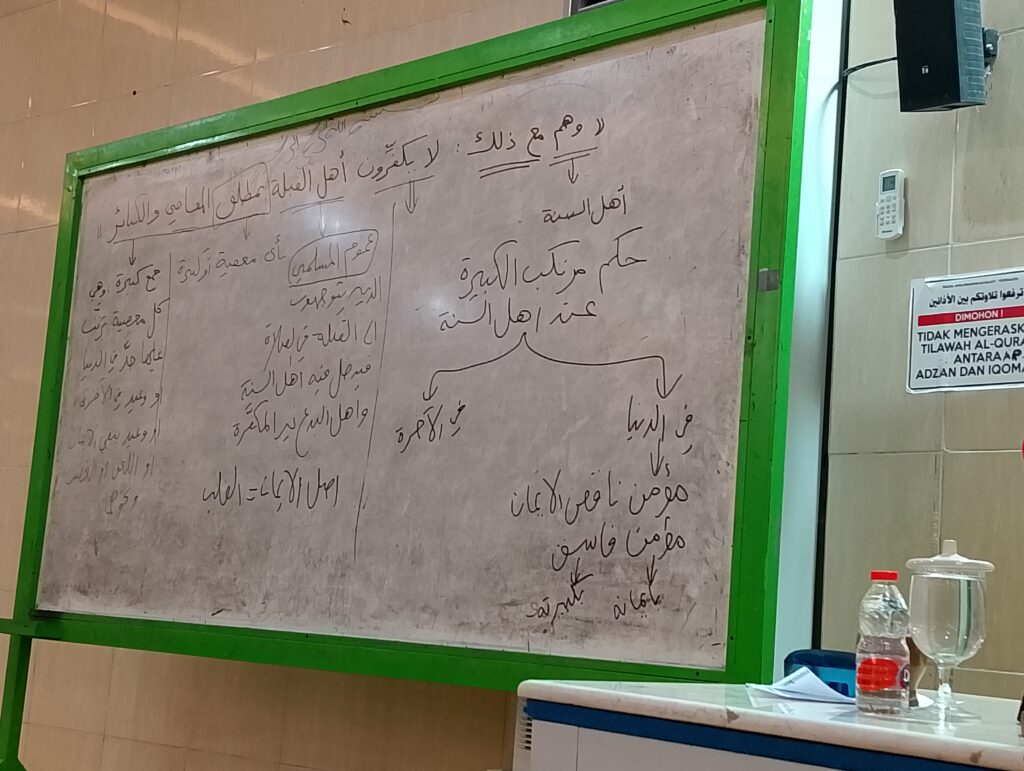 « وهم مع ذلك : لا يكفِّرون أهل القبلة بمطلق المعاصي والكبائر »
أهل السنة
حكم مرتكب الكبيرة
عند اهل السنة
في الدنيا
في الآخرة
مؤمن ناقص الإيمان
مؤمن فاسق
بإيمانه
بكبيرته
عموم المسلمين
الذين يتوجهون
الى القبلة في الصلاة
فيدخل فيه اهل السنة
واهل البدع غير المكفَّرة
اصل الإيمان = القلب
بأي معصية أو كبيرة
جمع كبيرة وهي
كل معصية ترتّب
عليها حدٌّ في الدنيا
او وعيد في الآخرة
او وعيد بنفي الإيمان
او اللعن او الغضب
ونحوه
ترفعوا تلاوتكم بين الأذانين
DIMOHON !
TIDAK MENGERASK
TILAWAH AL-QURA
ANTARA
ADZAN DAN IQOMA